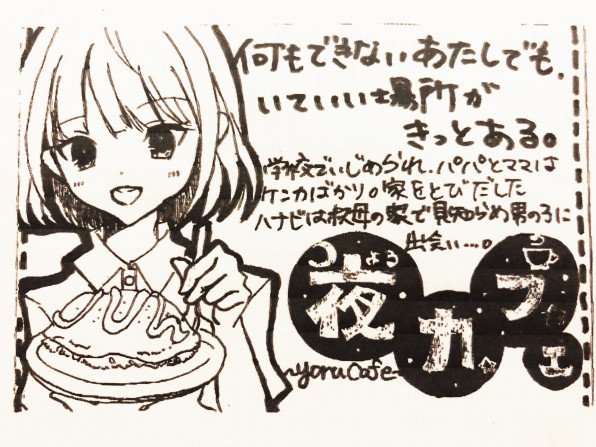 何もできないあたしでも、
いていい場所が
きっとある。
学校でいじめられ、パパとママは
ケンカばかり。家をとびだした
ハナビは叔母の家で見知らぬ男の子に
出会い…。
よる
夜カフェ
~yoru cafe~